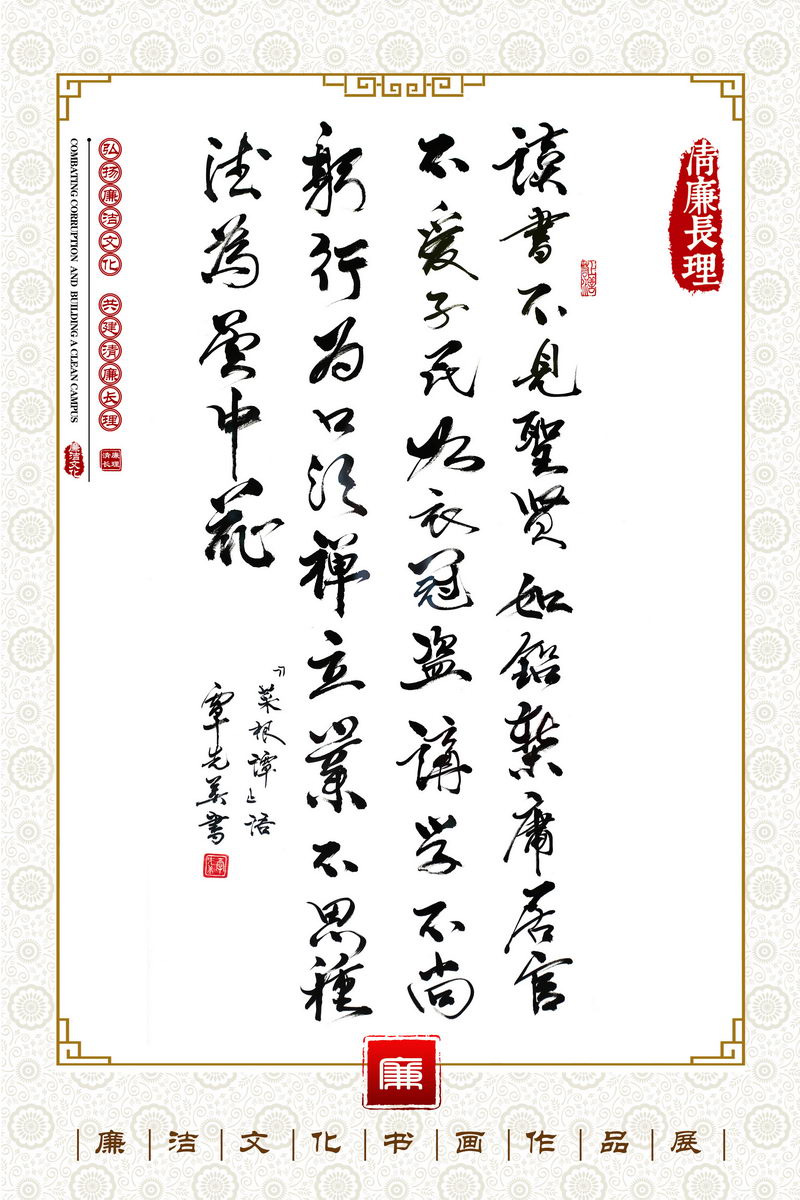 清廉長理
读書不見聖贤如鉛椠庸居官
不爱子民衣冠盗講学不尚
躬行为口頭禅立業不思種
德為中花
菜根谭上语
覃先美書
弘扬廉洁文化 共建清廉长理
COMBATING CORRUPTION AND BUILDING A CLEAN CAMPUS
廉洁文化
廉
廉洁文化书画作品展